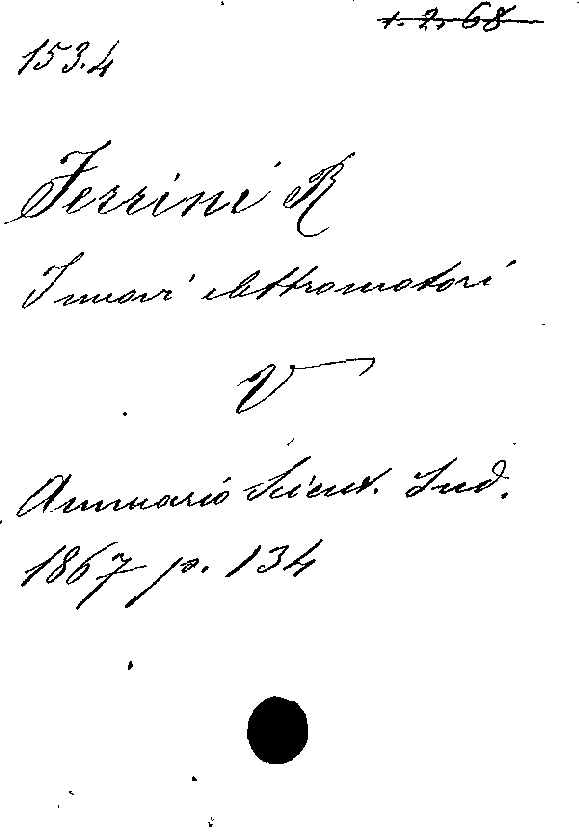 1. 2. 68
153.4
Ferrini R
I nuovi elettromotori
V
Annuario Scient. Ind.
1867 p. 134